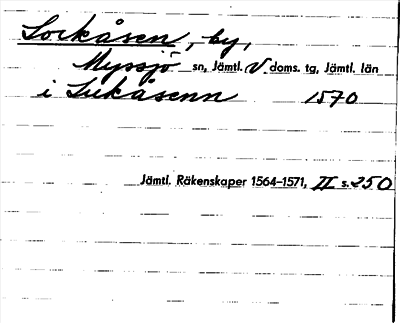 Lorkåsen, by,
Myssjö sn, Jämtl. V doms. tg, Jämtl. län
i Lukåsenn 1570
Jämtl. Räkenskaper 1564–1571, II s. 250